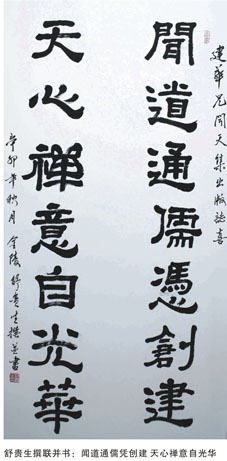 建華兄聞天集出版誌喜
聞道通儒憑創建
天心禪意自光華
辛卯年秋月金陵舒贵生撰并書
舒贵生撰联并书：闻道通儒凭创建 天心禅意自光华